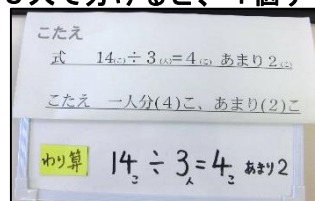 こたえ
式 14(こ)÷3(人)=4(こ) あまり2(こ)
こたえ 一人分(4)こ、あまり(2)こ
わり算 14こ÷3人=4こ あまり2